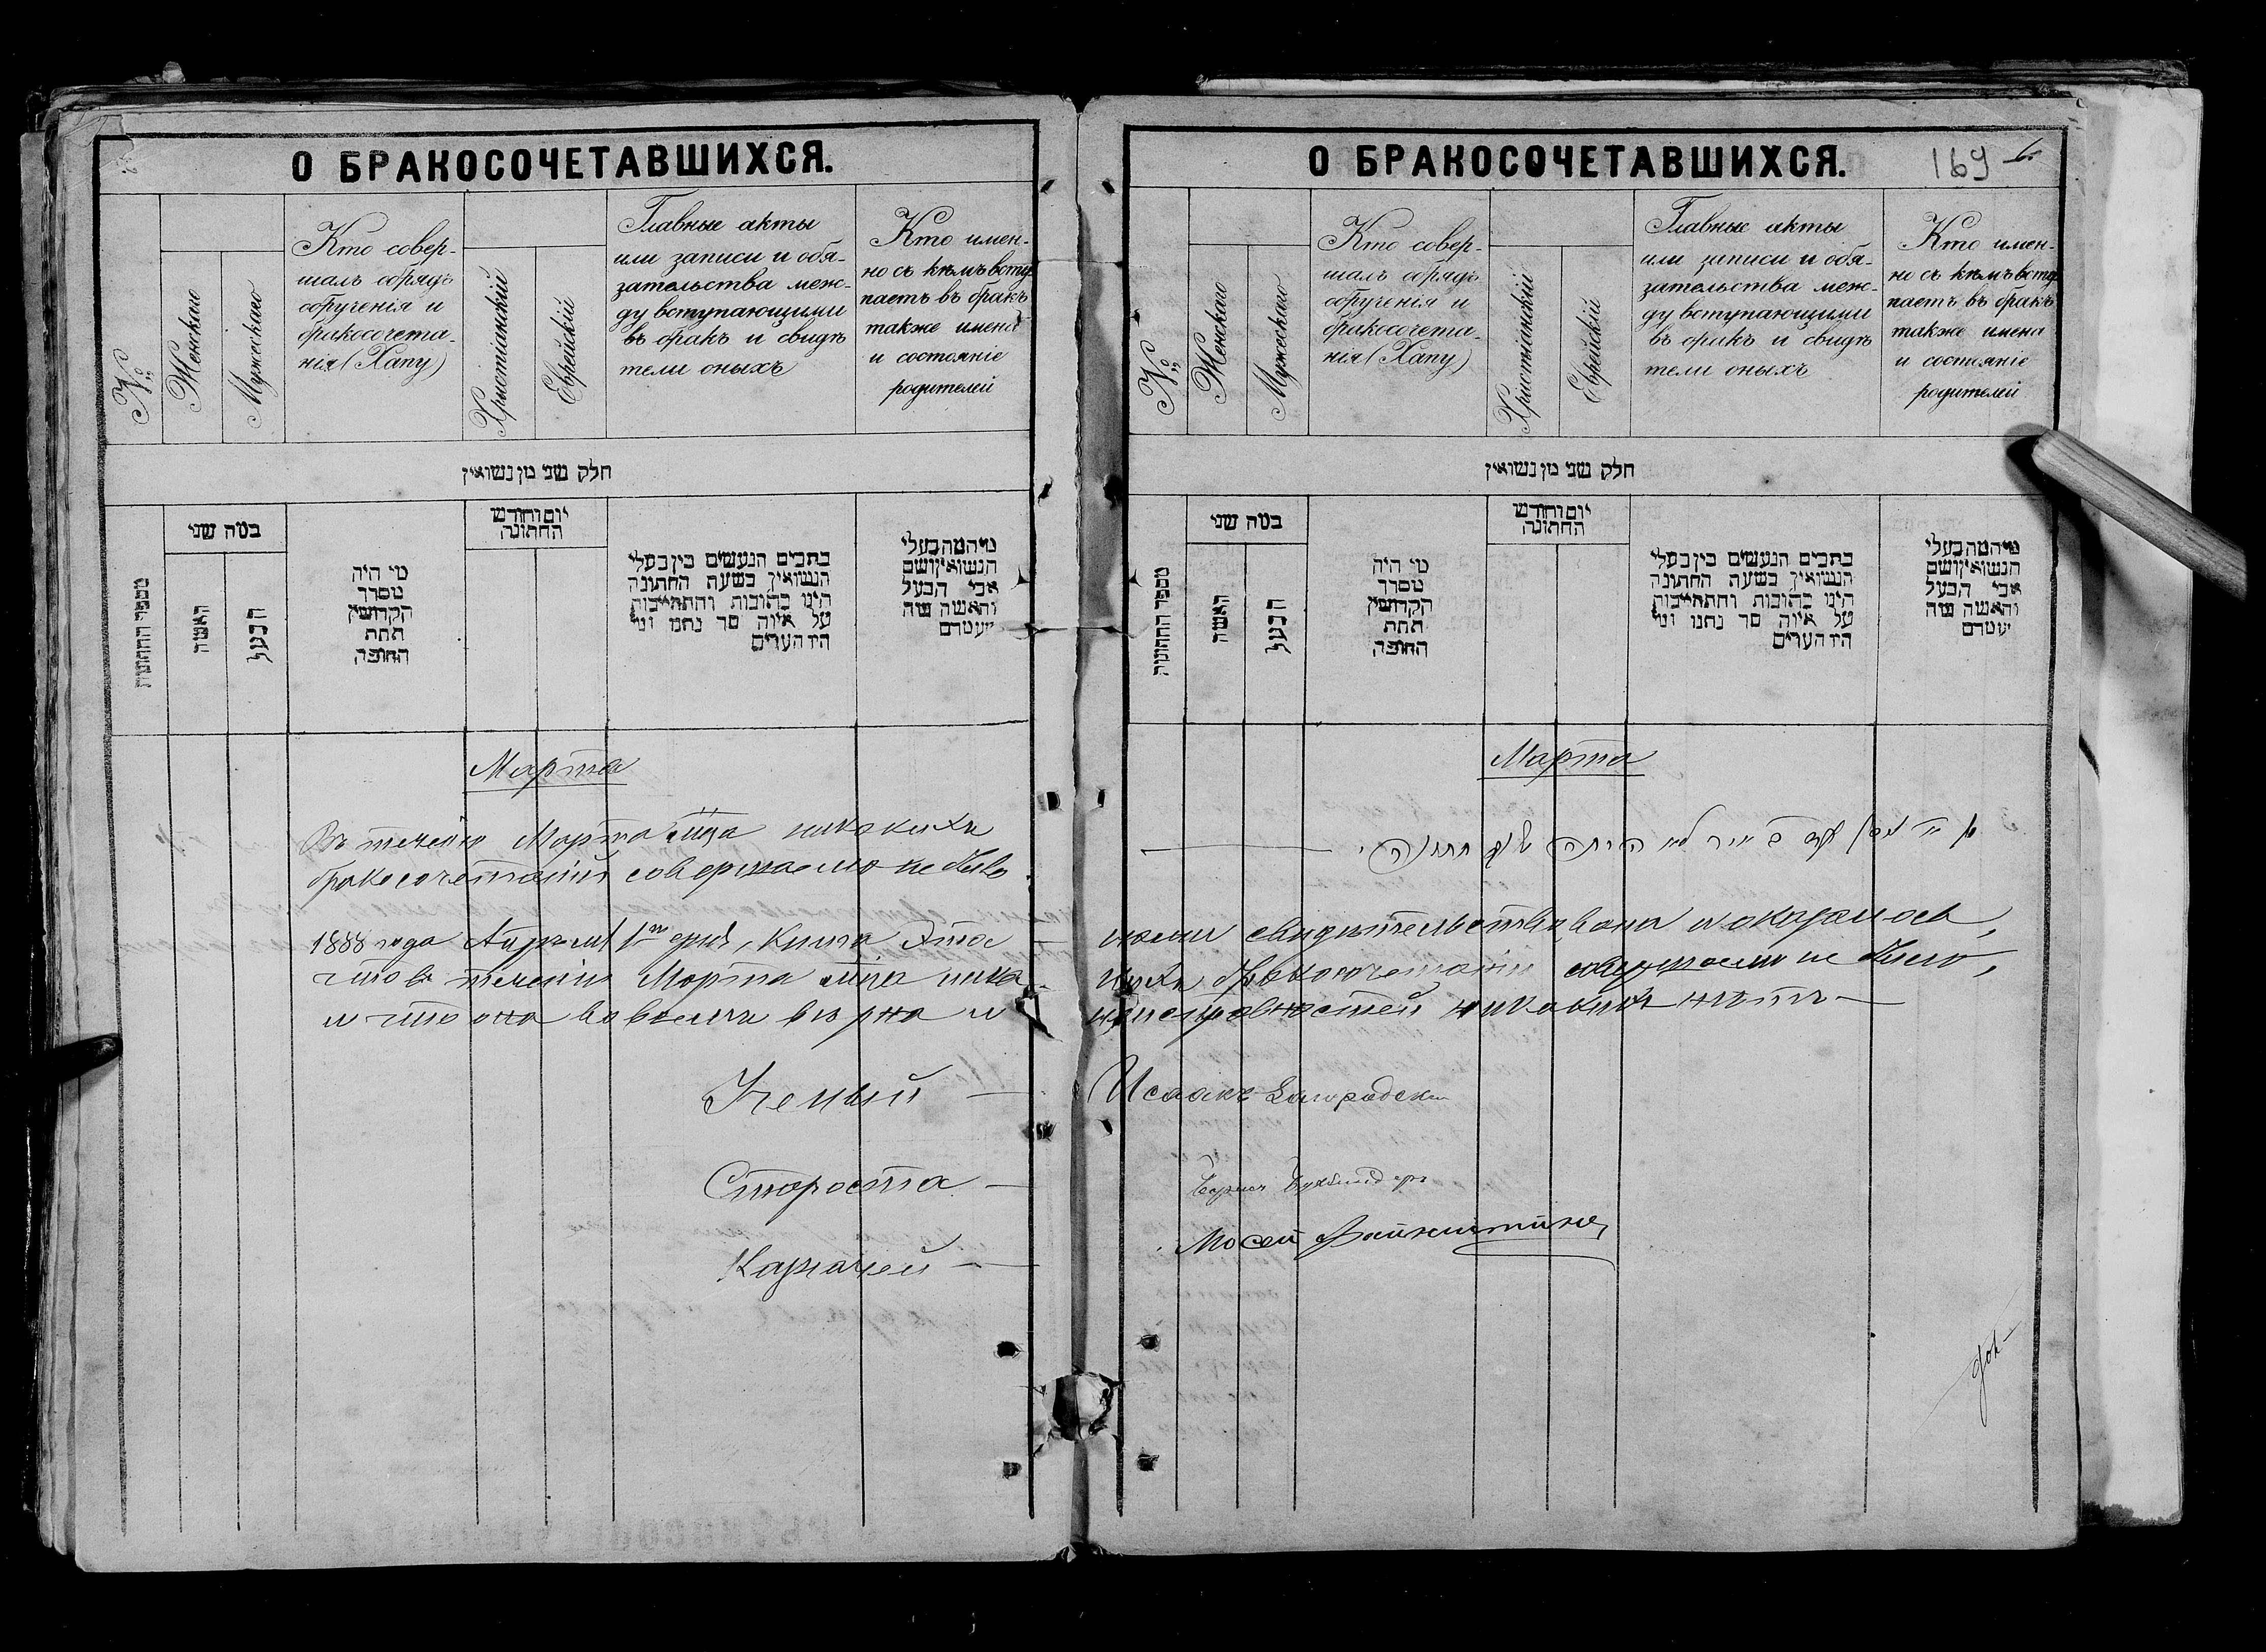 О БРАКОСОЧЕТАВШИХСЯ.
№
Женскаго
Мужескаго
Кто совер-
шалъ обрядъ
обрученія и
бракосочета-
нія (Хапу)
Христіанскій
Еврейскій
Главные акты
или записи и обя-
зательства меж-
ду вступающими
въ бракъ и свидѣ
тели оныхъ
Кто имен-
но съ кѣмъ всту
паетъ въ бракъ
также имена
и состояніе
родителей
חלק שני מן נשואין
מספר החתונות
כמה שני
האשה
הבעל
מי היה
מסדר
הקדושין
תחת
החופה
יום וחודש
החתונה
כתבים הנעשים בין בעלי
הנשואין בשעת החתונה
היגו כתובות והתחייבות
על איזה סך נתנו ומי
היו העדים
מי המה בעלי
הנשואין ושם
אבי הבעל
והאשה ומה
מעמדם
Марта
Въ теченіи Марта мца никакихъ
бракосочетаній совершаемо не было
1888 года Апреля 1го дня, Книга Эта
что въ теченіи Марта мца ника-
и что она во всемъ вѣрна и
Ученый —
Староста —
Казначей —
О БРАКОСОЧЕТАВШИХСЯ.
169
№
Женскаго
Мужескаго
Кто совер-
шалъ обрядъ
обрученія и
бракосочета-
нія (Хапу)
Христіанскій
Еврейскій
Главные акты
или записи и обя-
зательства меж-
ду вступающими
въ бракъ и свидѣ
тели оныхъ
Кто имен-
но съ кѣмъ всту
паетъ въ бракъ
также имена
и состояніе
родителей
חלק שני מן נשואין
מספר החתונות
כמה שני
האשה
הבעל
מי היה
מסדר
הקדושין
תחת
החופה
יום וחודש
החתונה
כתבים הנעשים בין בעלי
הנשואין בשעת החתונה
היגו כתובות והתחייבות
על איזה סך נתנו ומי
היו העדים
מי המה בעלי
הנשואין ושם
אבי הבעל
והאשה ומה
מעמדם
Марта
לא היתה שום חתונה
нами свидѣтельствована и оказалось,
кихъ бракосочетаній совершаемо не было,
неисправностей никакихъ нѣтъ —
Исаакъ Загородск
Мосей Файнштейнъ